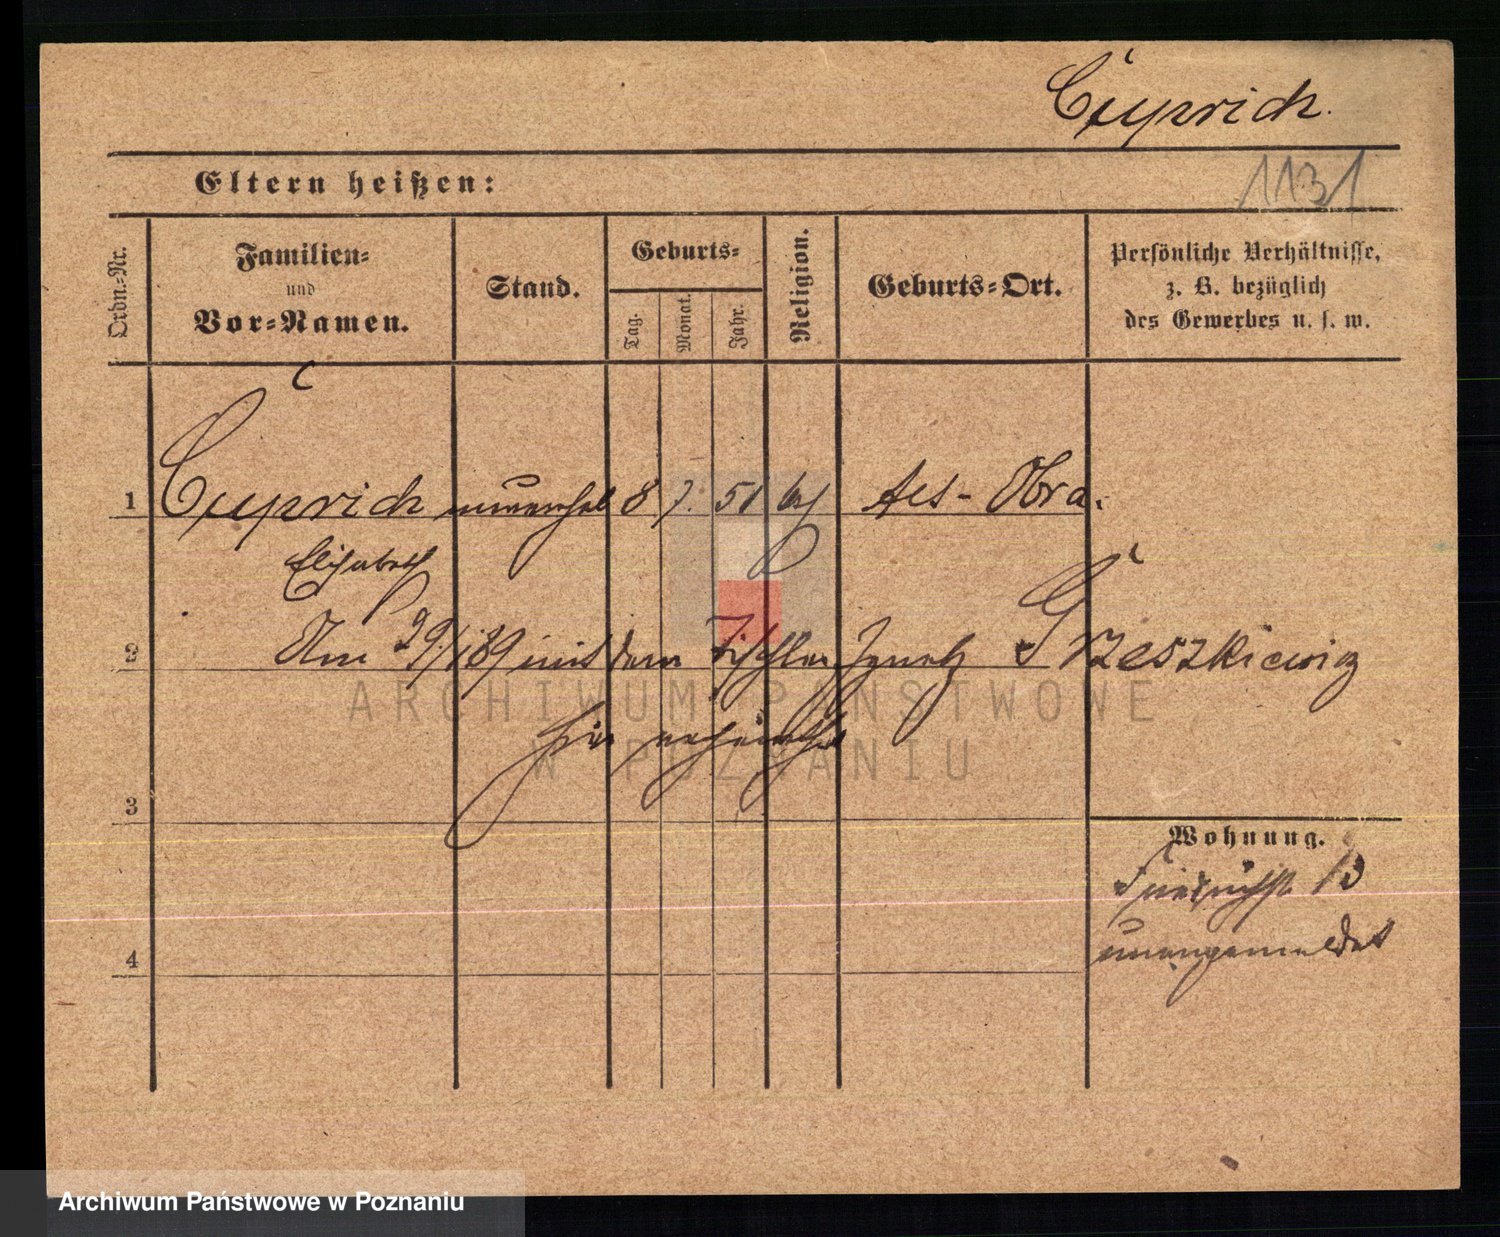 Cyprich.
1131
Eltern heißen:
Ordn.-Nr.
Familien-
und
Vor-Namen.
Stand.
Geburts-
Tag.
Monat.
Jahr.
Religion.
Geburts-Ort.
Persönliche Verhältnisse,
z. B. bezüglich
des Gewerbes u. s. w.
1 Cyprich unverehel 8 7. 51 Alt-Obra.
Elisabeth
2 Am 29/1 89 mit dem Tischler Ignatz
hier verheirathet
ARCHIWUM PAŃSTWOWE
W POZNANIU
3
Wohnung.
13
4 unangemeldet
Archiwum Państwowe w Poznaniu